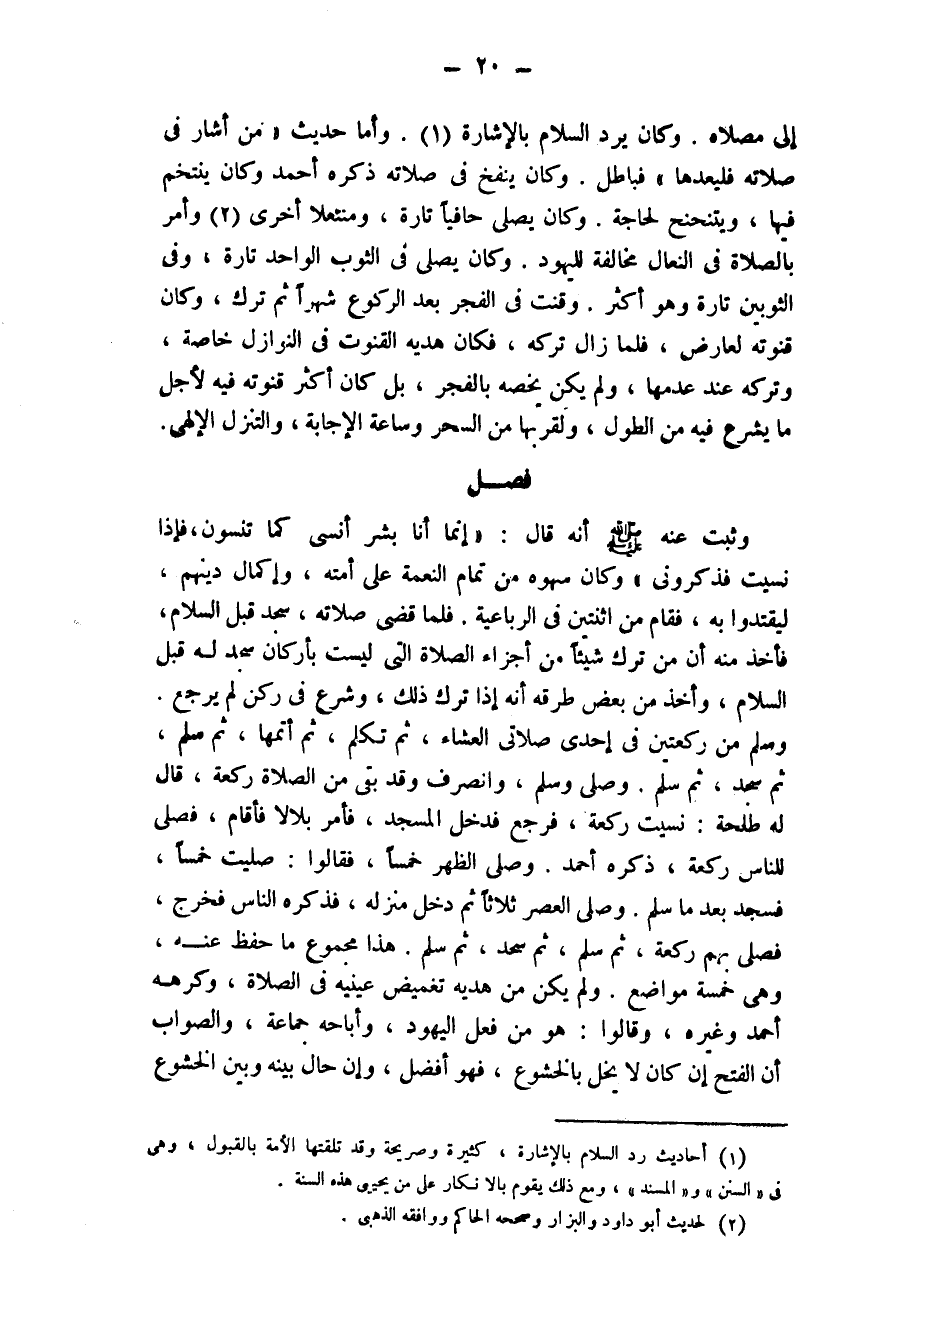 – ٢٠ –
إلى مصلاه . وكان يرد السلام بالإشارة (١) . وأما حديث « من أشار فى
صلاته فليعدها » فباطل . وكان ينفخ فى صلاته ذكره أحمد وكان ينتخم
فيها ، ويتنحنح لحاجة . وكان يصلى حافياً تارة ، ومنتعلا أخرى (٢) وأمر
بالصلاة فى النعال مخالفة لليهود . وكان يصلى فى الثوب الواحد تارة ، وفى
الثوبين تارة وهو أكثر . وقنت فى الفجر بعد الركوع شهراً ثم ترك ، وكان
قنوته لعارض ، فلما زال تركه ، فكان هديه القنوت فى النوازل خاصة ،
وتركه عند عدمها ، ولم يكن يخصه بالفجر ، بل كان أكثر قنوته فيه لأجل
ما يشرع فيه من الطول ، ولقربها من السحر وساعة الإجابة ، والتنزل الإلهى.
فصـــل
وثبت عنه ﷺ أنه قال : « إنما أنا بشر أنسى كما تنسون ، فإذا
نسيت فذكرونى » وكان سهوه من تمام النعمة على أمته ، وإكمال دينهم ،
ليقتدوا به ، فقام من اثنتين فى الرباعية . فلما قضى صلاته ، سجد قبل السلام ،
فأخذ منه أن من ترك شيئاً من أجزاء الصلاة التى ليست بأركان سجد لـه قبل
السلام ، وأخذ من بعض طرقه أنه إذا ترك ذلك ، وشرع فى ركن لم يرجع .
وسلم من ركعتين فى إحدى صلاتى العشاء ، ثم تكلم ، ثم أتمها ، ثم سلم ،
ثم سجد ، ثم سلم . وصلى وسلم ، وانصرف وقد بقى من الصلاة ركعة ، قال
له طلحة : نسيت ركعة ، فرجع فدخل المسجد ، فأمر بلالا فأقام ، فصلى
للناس ركعة ، ذكره أحمد . وصلى الظهر خمساً ، فقالوا : صليت خمساً ،
فسجد بعد ما سلم . وصلى العصر ثلاثاً ثم دخل منزله ، فذكره الناس فخرج ،
فصلى بهم ركعة ، ثم سلم ، ثم سجد ، ثم سلم . هذا مجموع ما حفظ عنـــه ،
وهى خمسة مواضع . ولم يكن من هديه تغميض عينيه فى الصلاة ، وكرهـه
أحمد وغيره ، وقالوا : هو من فعل اليهود ، وأباحه جماعة ، والصواب
أن الفتح إن كان لا يخل بالخشوع ، فهو أفضل ، وإن حال بينه وبين الخشوع
(١) أحاديث رد السلام بالإشارة ، كثيرة وصريحة وقد تلقتها الأمة بالقبول ، وهى
فى « السنن » و« المسند » ، ومع ذلك يقوم بالانكار على من يحيى هذه السنة .
(٢) لحديث أبو داود والبزار وصححه الحاكم ووافقه الذهبى .